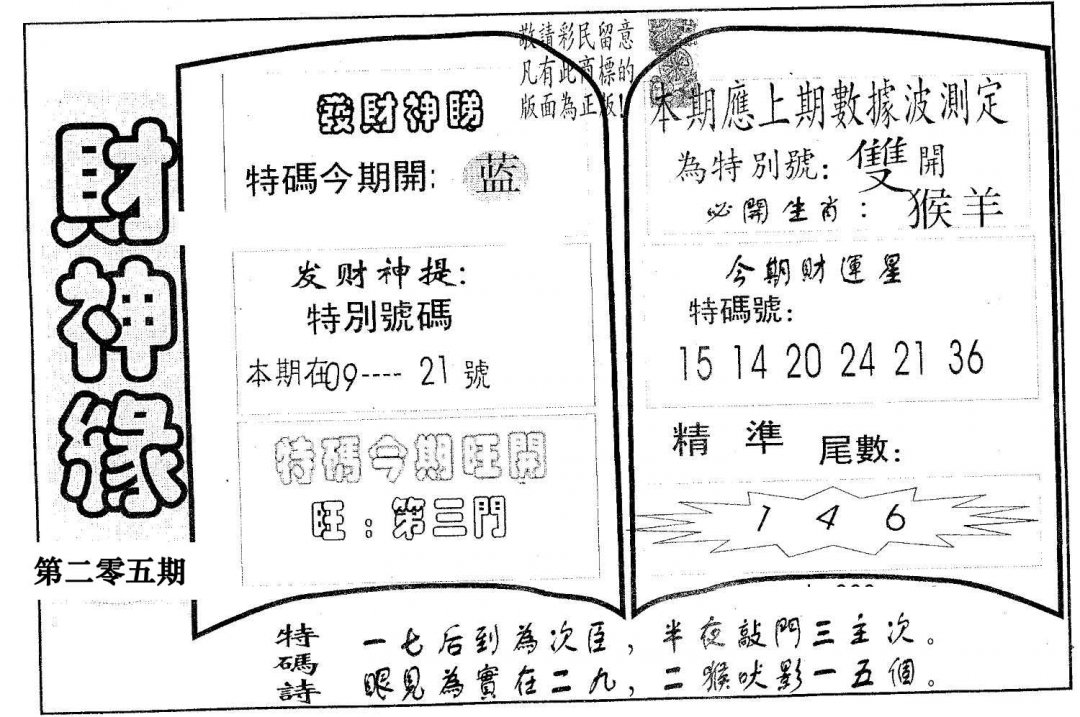 敬請彩民留意
凡有此商標的
版面為正版!
財神緣
第二零五期
發財神睇
特碼今期開: 蓝
发财神提:
特別號碼
本期在09----21號
特碼今期旺開
旺:第三門
本期應上期數據波測定
為特別號:雙開
必開生肖:猴羊
今期財運星
特碼號:
15 14 20 24 21 36
精準尾數:
1 4 6
特碼詩
一七后到為次臣,半夜敲門三主次。
眼見為實在二九,二猴吠影一五個。